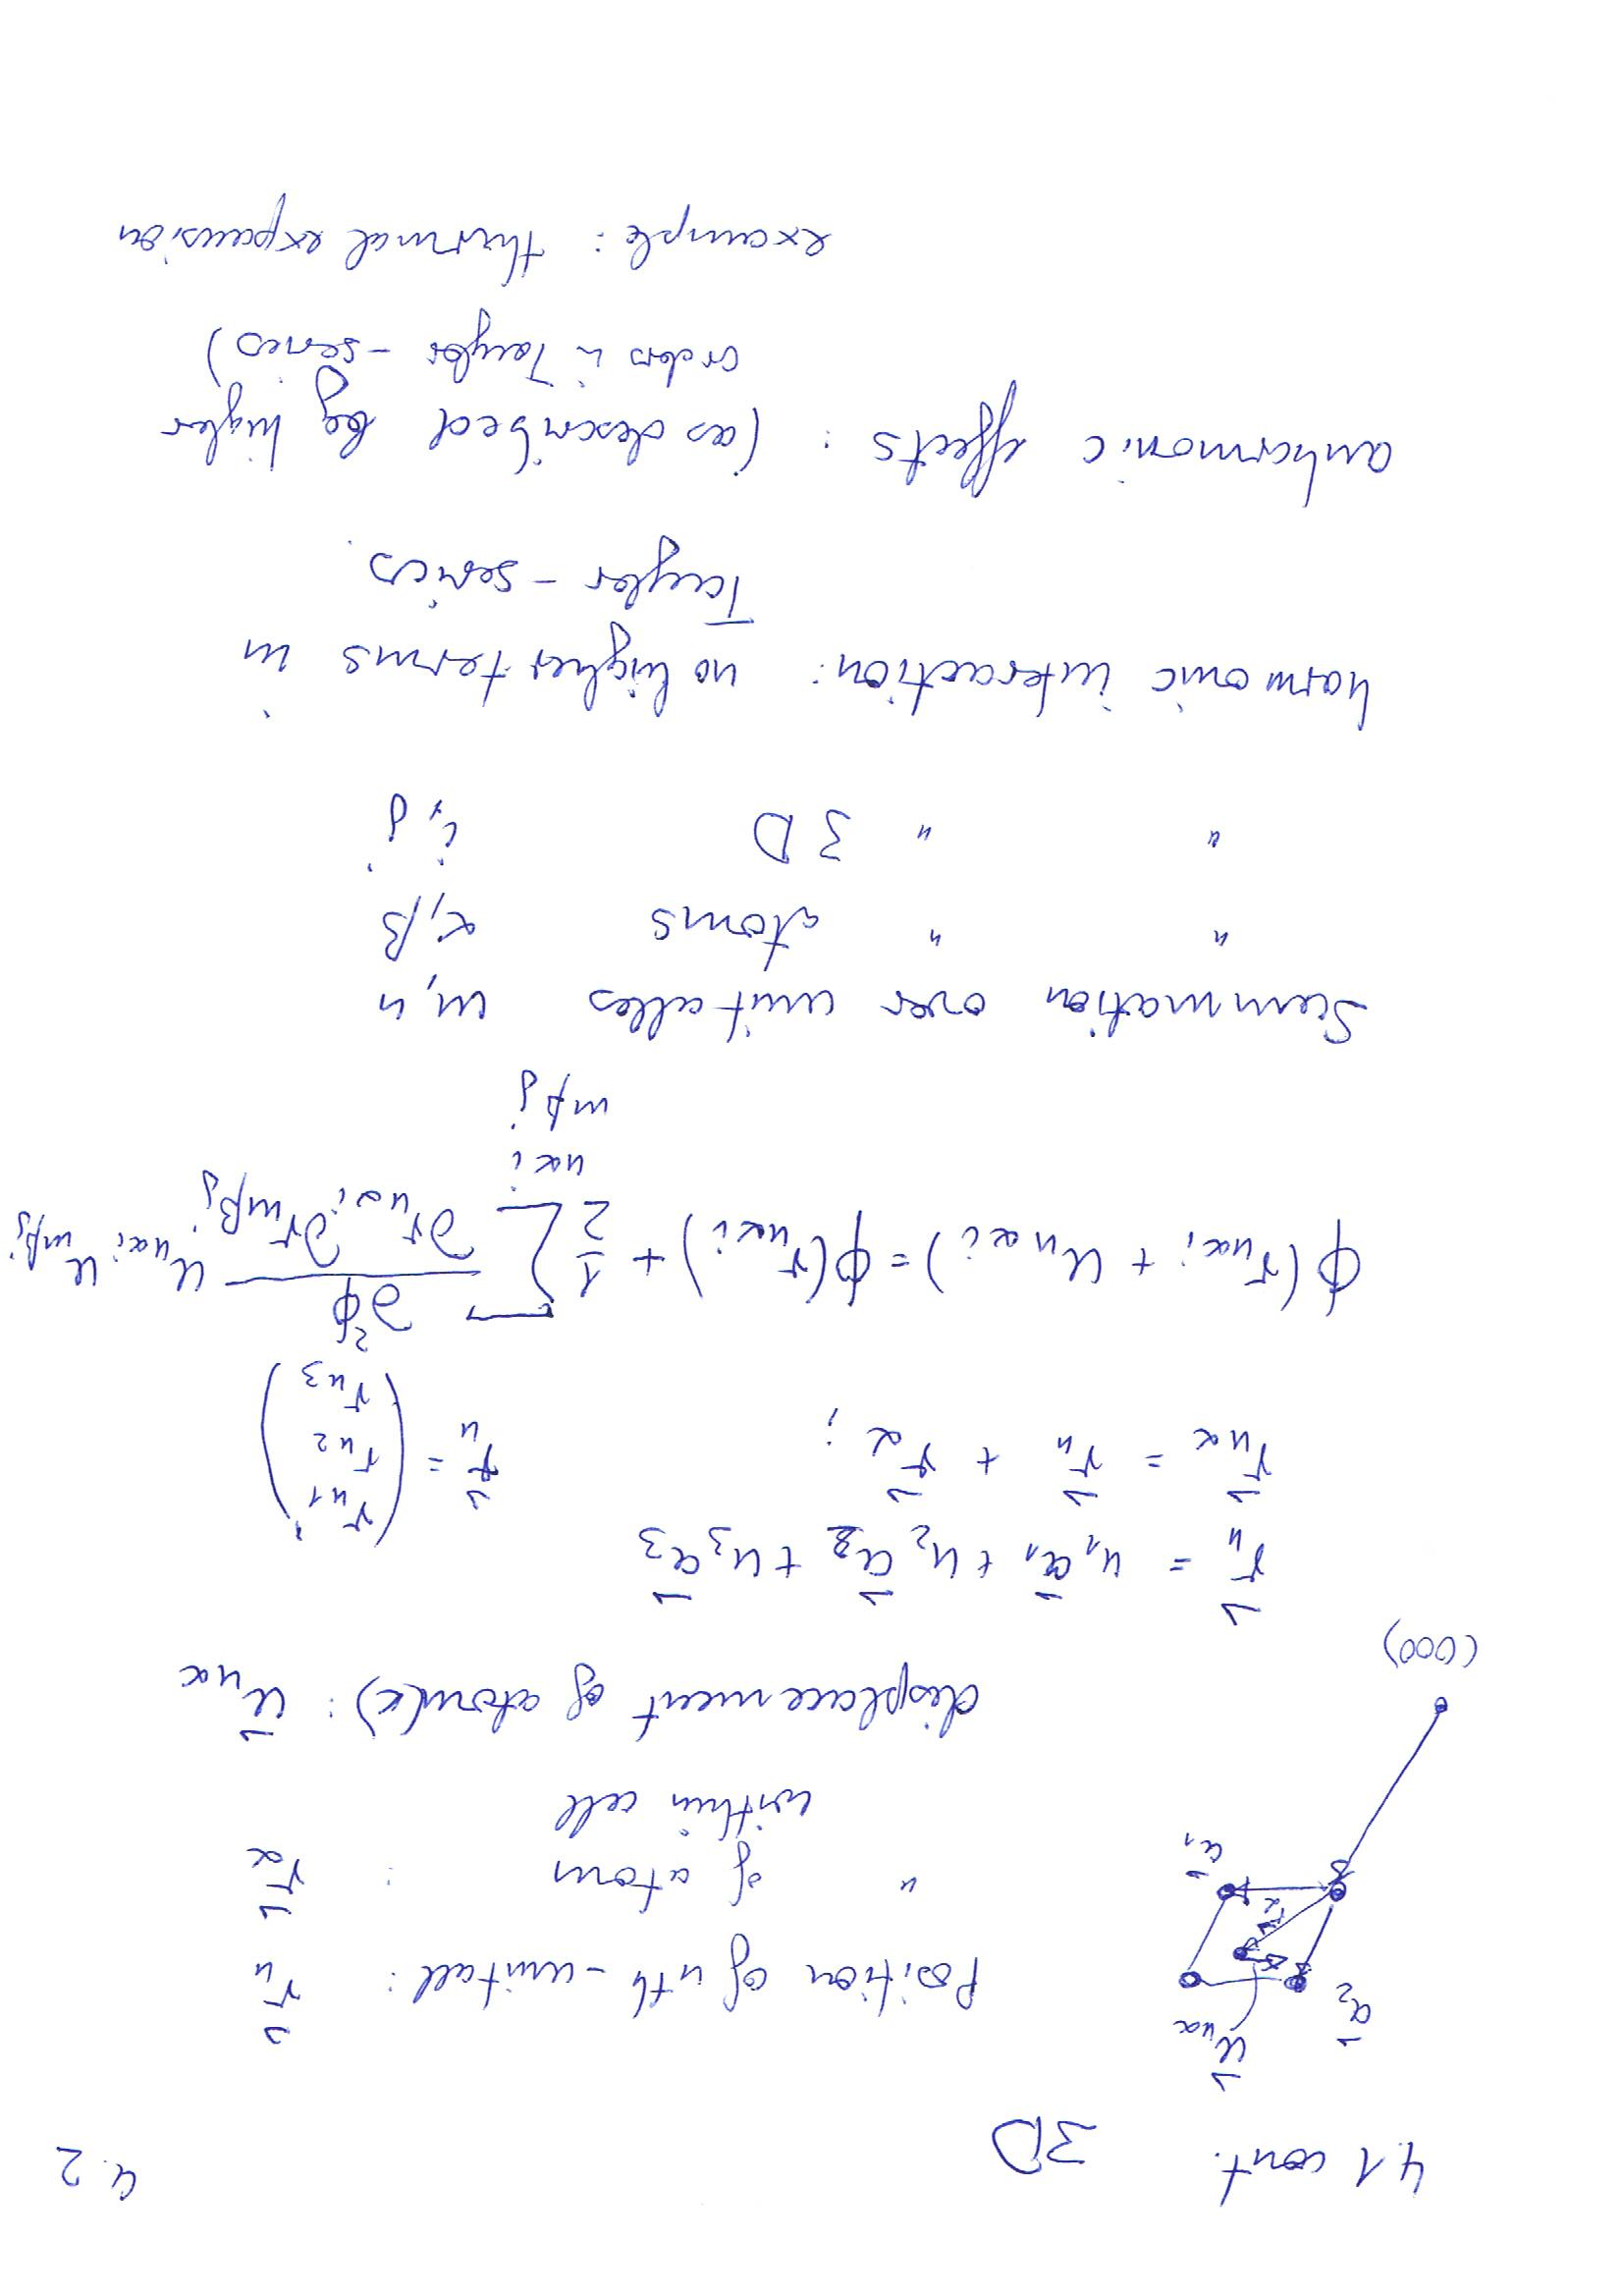 4.1 cont. 3D 4.2
Position of nth-unitcell: r⃗ₙ
" of atom : r⃗_α
within cell
displacement of atom(α): u⃗_nα
u⃗_nα
a⃗₂
r⃗_α
a⃗₁
(000)
r⃗ₙ = n₁a⃗₁ + n₂a⃗₂ + n₃a⃗₃
r⃗_nα = r⃗ₙ + r⃗_α ; r⃗ₙ = (r_n1 r_n2 r_n3)
ϕ(r_nαi + u_nαi) = ϕ(r_nαi) + 1/2 Σ_{nαi mβj} ∂²ϕ/∂r_nαi ∂r_mβj u_nαi u_mβj
Summation over unit cells m,n
" " atoms α,β
" " 3D i,j
harmonic interaction: no higher terms in
Taylor-series.
anharmonic effects: (as described by higher
orders in Taylor-series)
example: thermal expansion